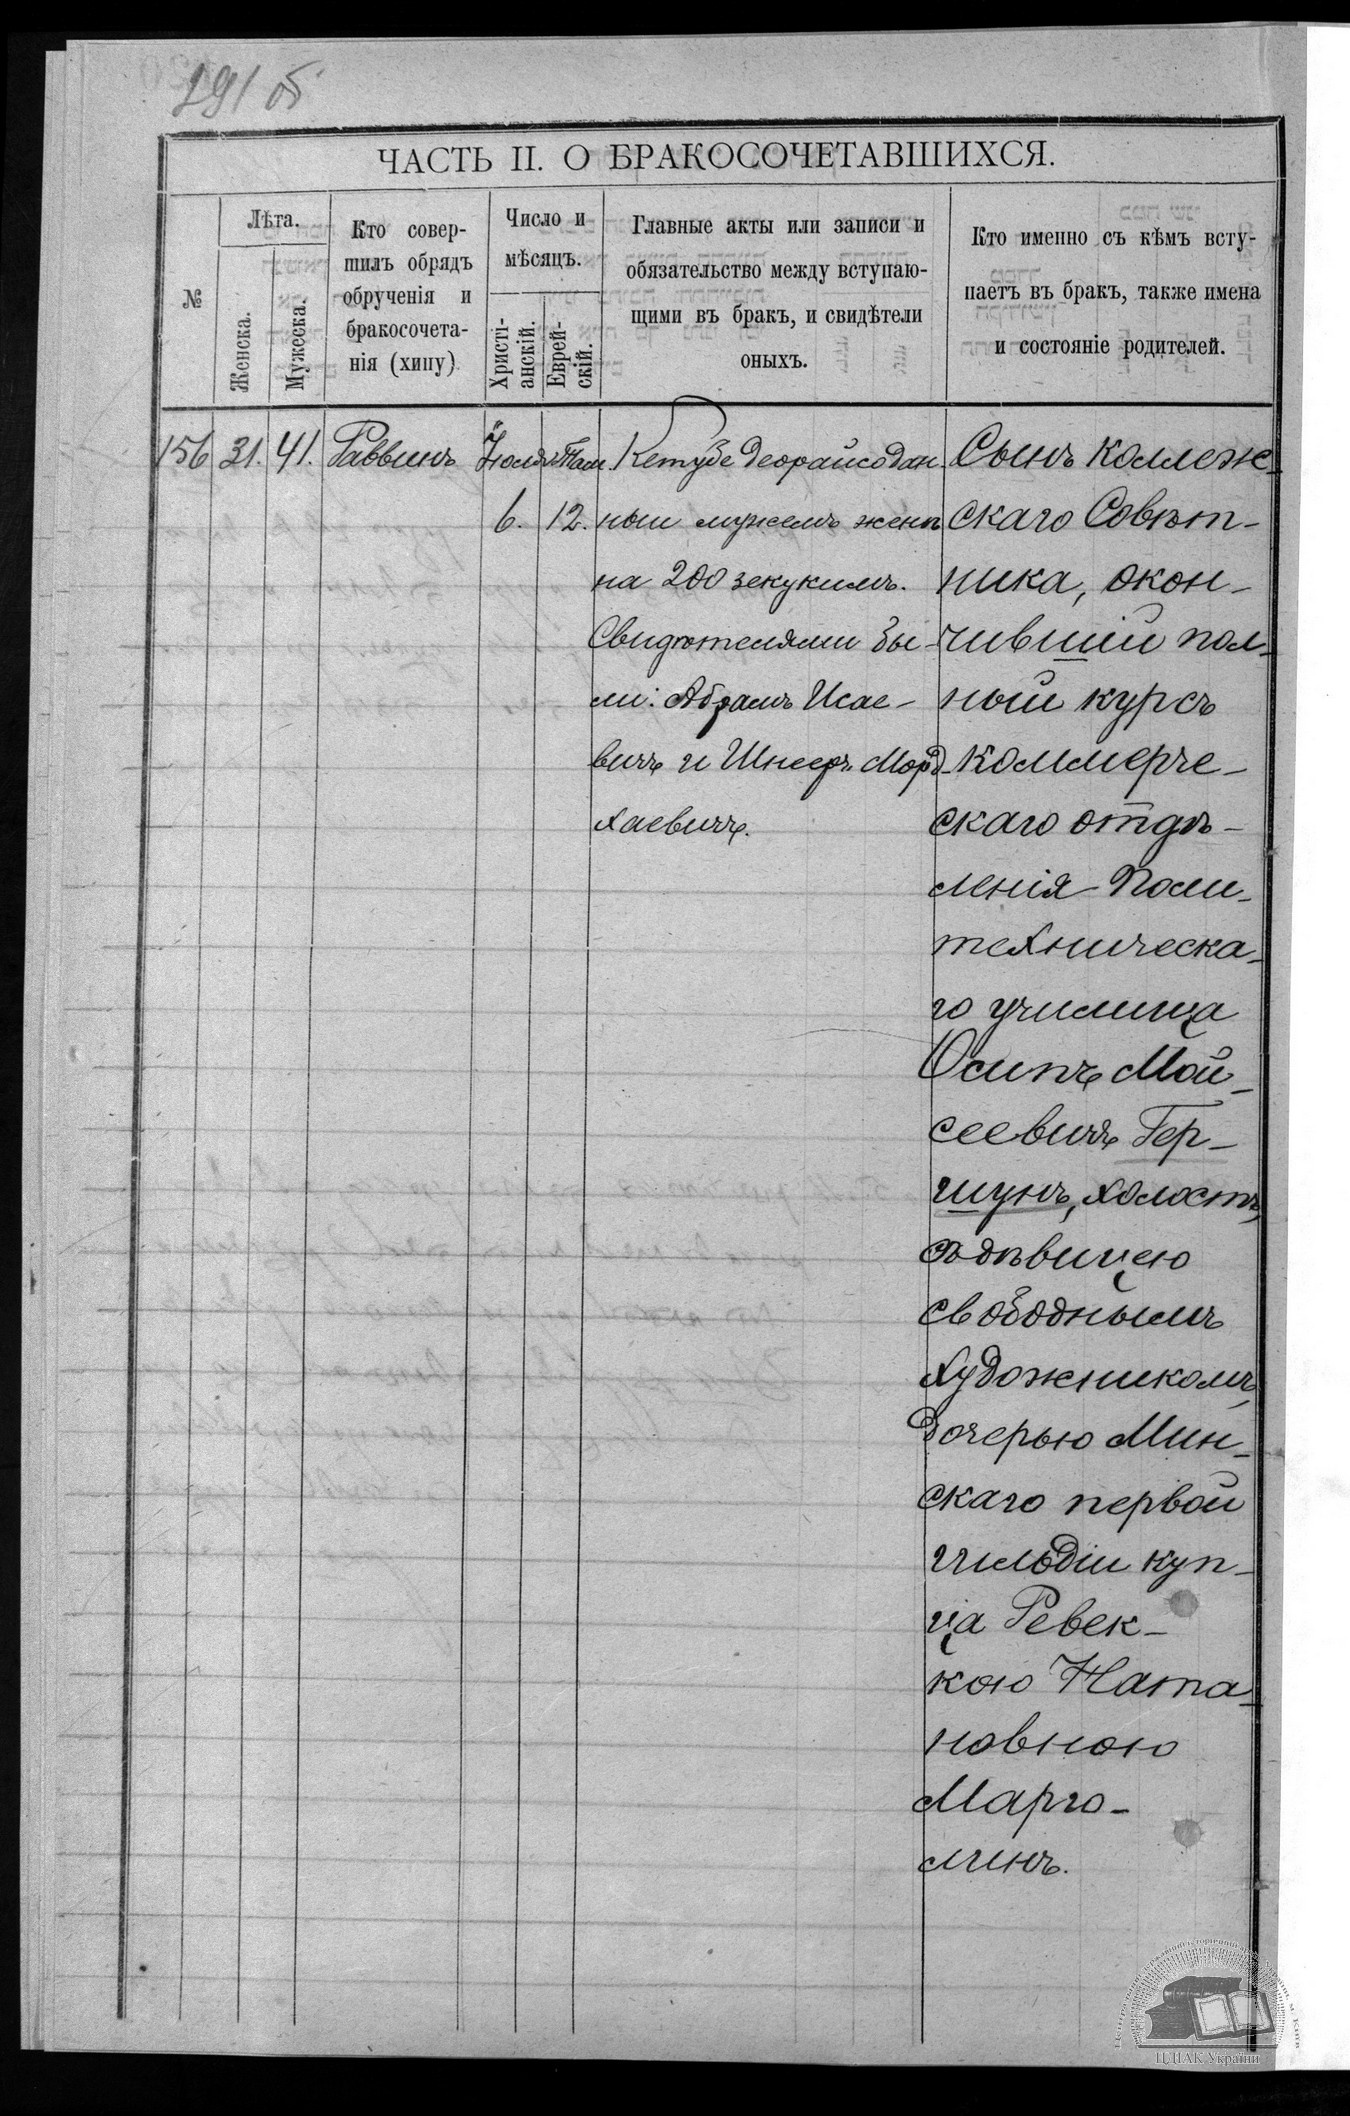 291 об
ЧАСТЬ II. О БРАКОСОЧЕТАВШИХСЯ.
№
Лѣта.
Женска.
Мужеска.
Кто совер-
шилъ обрядъ
обрученія и
бракосочета-
нія (хипу)
Число и
мѣсяцъ.
Христі-
анскій.
Еврей-
скій.
Главные акты или записи и
обязательство между вступаю-
щими въ бракъ, и свидѣтели
оныхъ.
Кто именно съ кѣмъ всту-
паетъ въ бракъ, также имена
и состояніе родителей.
156
31.
41.
Раввинъ
Іюля
6.
Там.
12.
Кетубе деорайсо дан-
ный мужемъ женѣ
на 200 зекукимъ.
Свидѣтелями бы-
ли: Абрамъ Исае-
вичъ и Шнееръ Морд-
хаевичъ.
Сынъ коллеж-
скаго Совѣт-
ника, окон-
чившій пол-
ный курсъ
коммерче-
скаго отдѣ-
ленія Поли-
техническа-
го училища
Осипъ Мой-
сеевичъ Гер-
шунъ, холостъ,
съ дѣвицею
свободнымъ
художникомъ,
дочерью Мин-
скаго первой
гильдіи куп-
ца Ревек-
кою Ната-
новною
Марго-
линъ.
ЦДІАК України